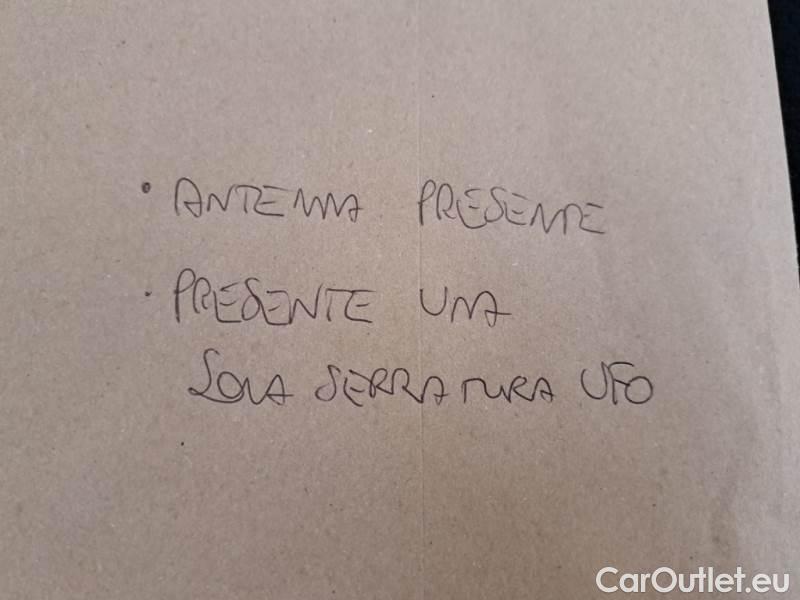 • ANTENNA PRESENTE
• PRESENTE UNA
SOLA SERRATURA UFO
CarOutlet.eu